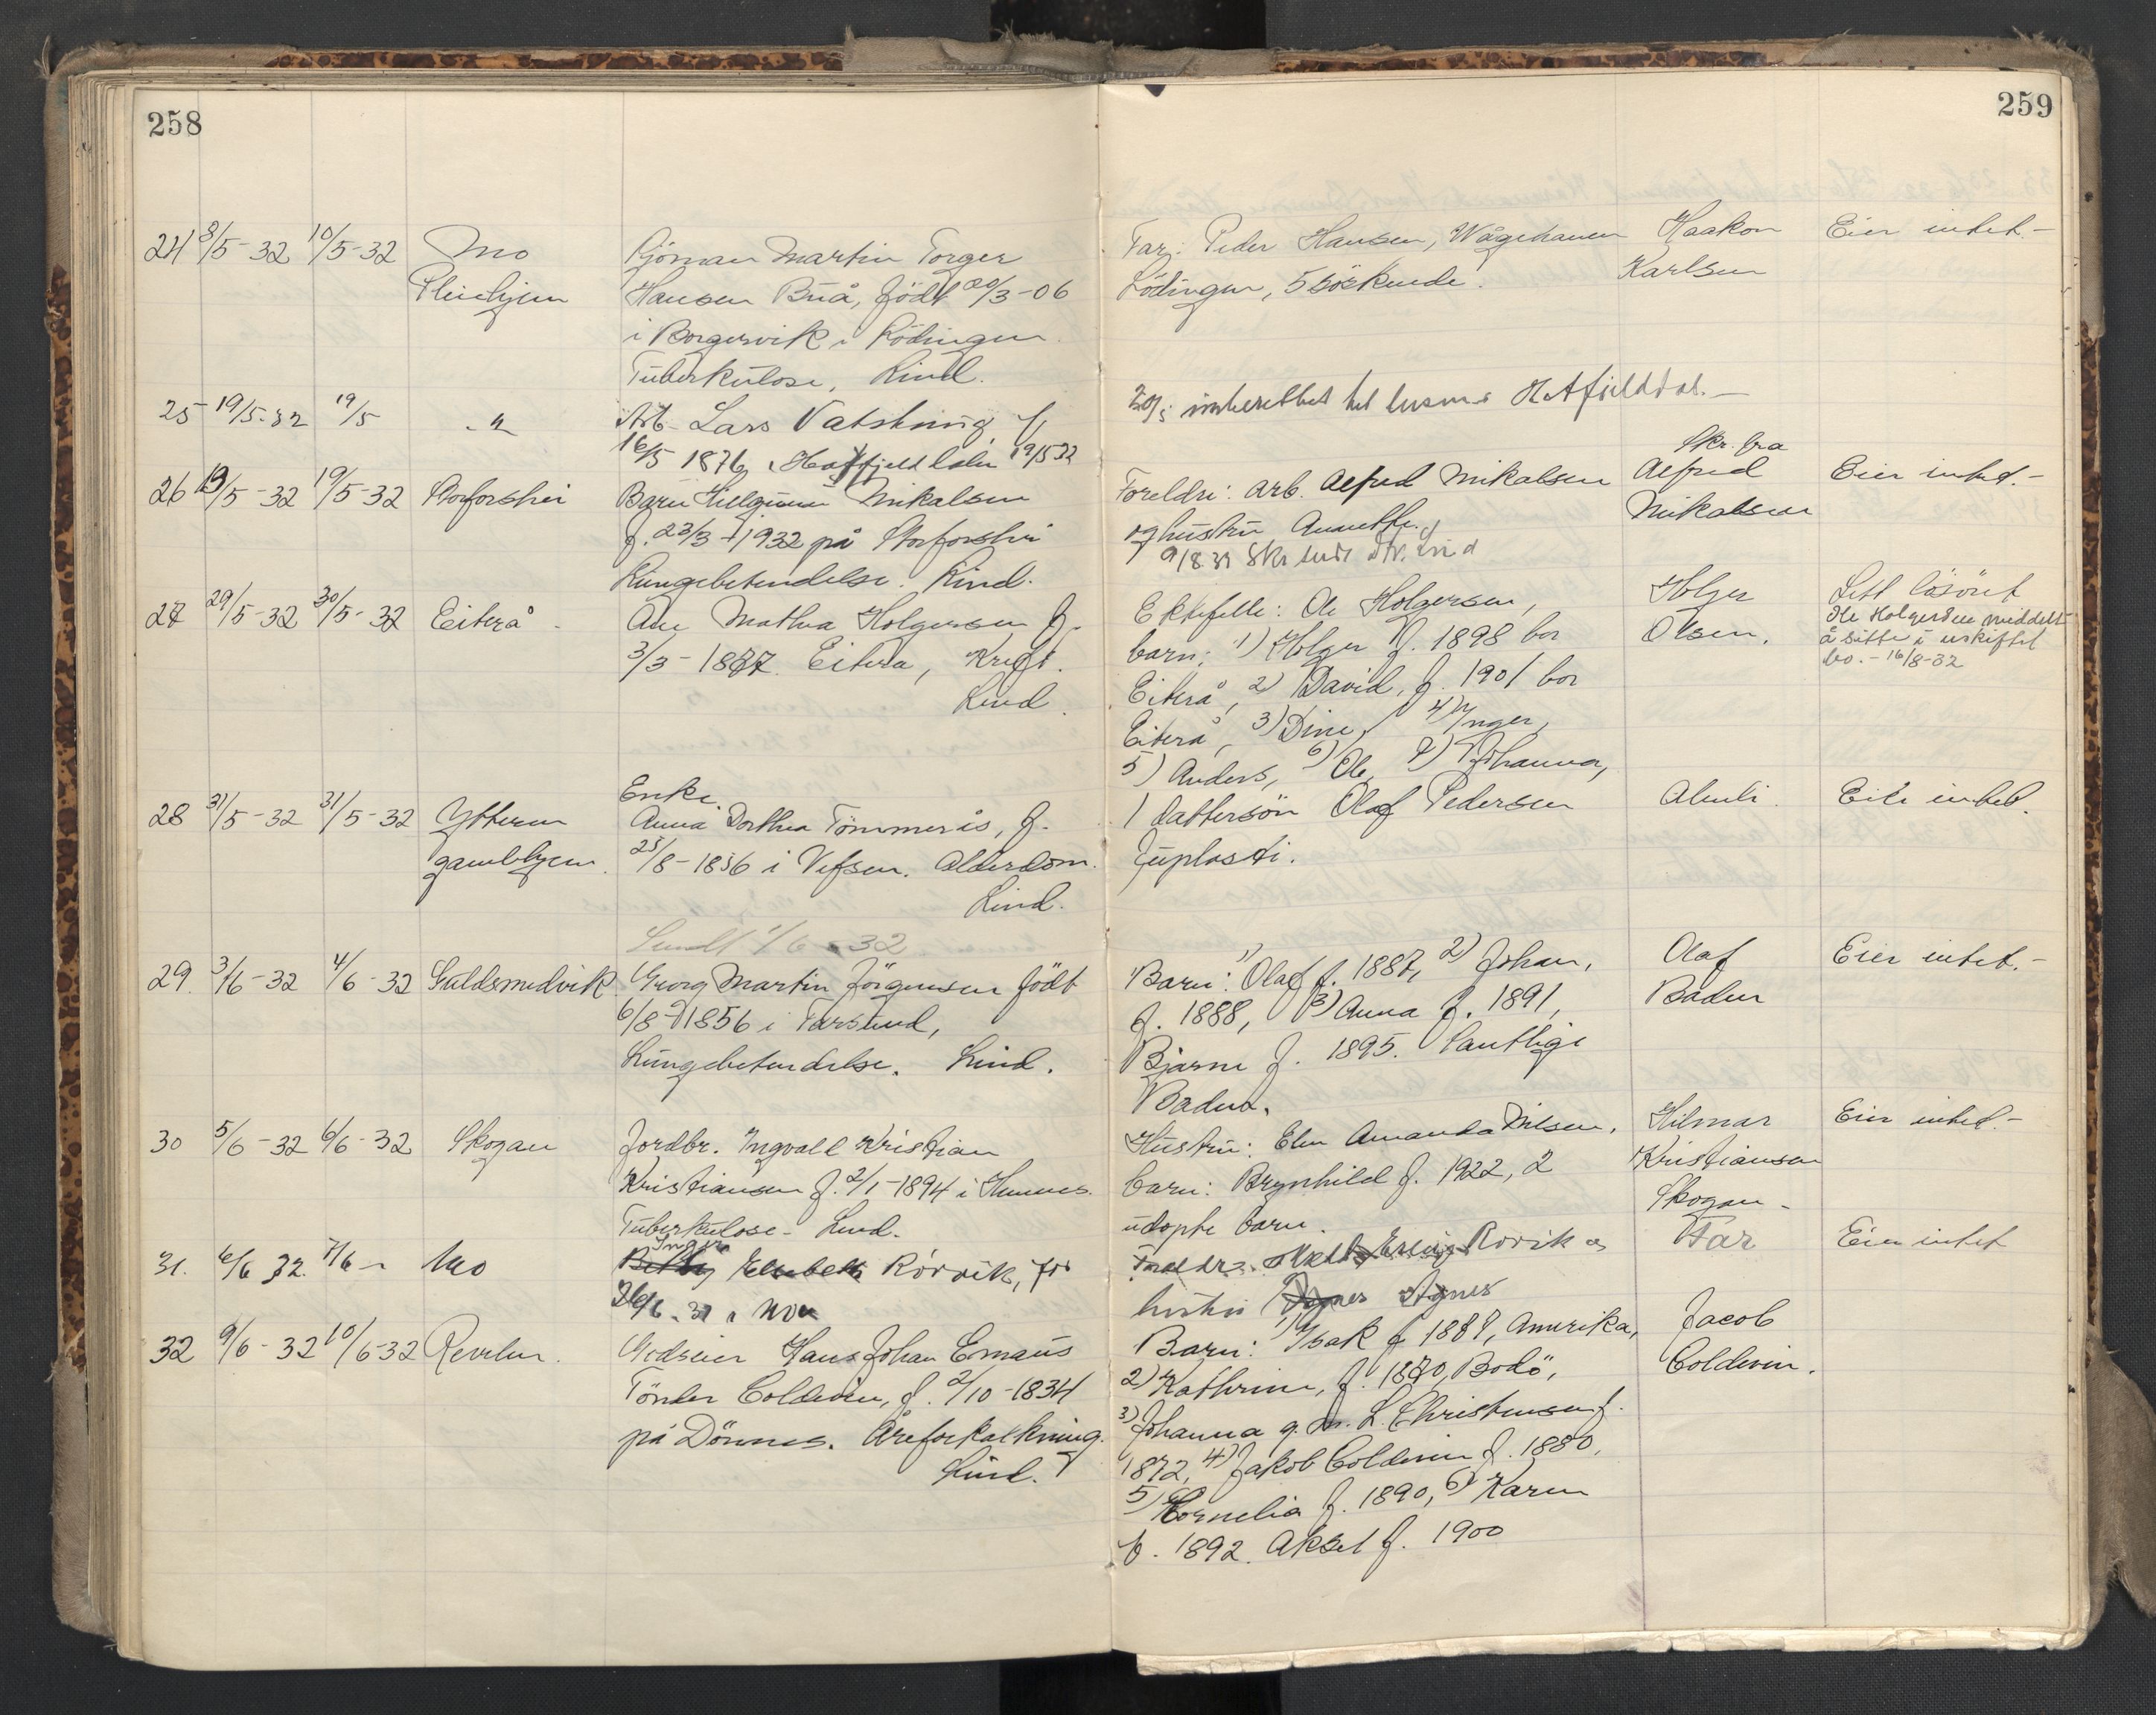 258
24 8/5-32 10/5-32 Mo
Pleiehjem
Sjöman Martin Torger
Hansen Buå, födt 20/3-06
i Borgervik i Lödingen.
Tuberkulose, Lind.
25 19/5-32 19/5 -"-
Arb. Lars Vatshaug f.
16/5 1876 i Hatfjelddalen 19/5 32
26 19/5-32 19/5-32 Storforshei
Barn Mikalsen
f. 23/3-1932 på Storforshei
Lungebetendelse. Lind.
27 29/5-32 30/5-32 Eiterå
Ane Mathea Holgersen f.
3/3-1867 Eiterå, Kreft.
Lind.
28 31/5-32 31/5-32 Ytteren
gamlehjem.
Enke.
Anna Dorthea Tömmerås, f.
25/8-1836 i Vefsen. Alderdom.
Lind.
Sendt 1/6-32
29. 3/6-32 4/6-32 Guldsmedvik
Georg Martin Jörgensen födt
6/8-1856 i Farsund,
Lungebetendelse. Lind.
30 5/6-32 6/6-32 Skogan
Jordbr. Ingvall Kristian
Kristiansen f. 2/1-1894 i Hemnes.
Tuberkulose - Lind.
31. 6/6 32. 7/6 - Mo
Inger
Betty Elisabeth Rörvik, för
26/6.31 i Mo
32 9/6-32 10/6-32 Revelen.
Godseier Hans Johan Emaus
Tönder Coldevin, f. 2/10-1834
på Dönnes. Åreforkalkning.
Lind.
259
Far: Peder Hansen, Vågehavn
Lödingen, 5 söskende.
Haakon
Karlsen
Eier intet.-
20/5 innberettet til lensm. i Hatfjelddal.-
Foreldre: arb. Alfred Mikalsen
og hustru Annette.
9/8 32 Skr. sendt
Skr. fra
Alfred
Mikalsen
Eier intet.-
Ektefelle: Ole Holgersen,
barn: 1) Holger f. 1898 bor
Eiterå, 2) David, f. 1901 bor
Eiterå, 3) Dine, 4) Inger,
5) Anders, 6) Ole, 7) Johanna,
Holger
Olsen.
Litt lösöret
Ole Holgersen meddelt
å sitte i uskiftet
bo. - 16/8-32
1 dattersön Olaf Pedersen
Juplasti.
Almli.
Eier intet.
Barn: 1) Olaf f. 1887, 2) Johan,
f. 1888, 3) Anna f. 1891,
Bjarne f. 1895. Samtlige
Baden.
Olaf
Baden
Eier intet.-
Hustru: Elen Amanda Nilsen.
barn: Brynhild f. 1922, 2
udöpte barn.
Hilmar
Kristiansen
Skogan -
Eier intet.-
Foreldre: Rörvik og
hustru Agnes Agnes
Far
Eier intet
Barn: 1) Isak f 1889, Amerika,
2) Kathrine, f. 1870, Bodö,
3) Johanna g. m. L. Christensen f.
1872, 4) Jakob Coldevin f. 1880,
5) Cornelia f. 1890, 6) Karen
f. 1892. Aksel f. 1900
Jacob
Coldevin.